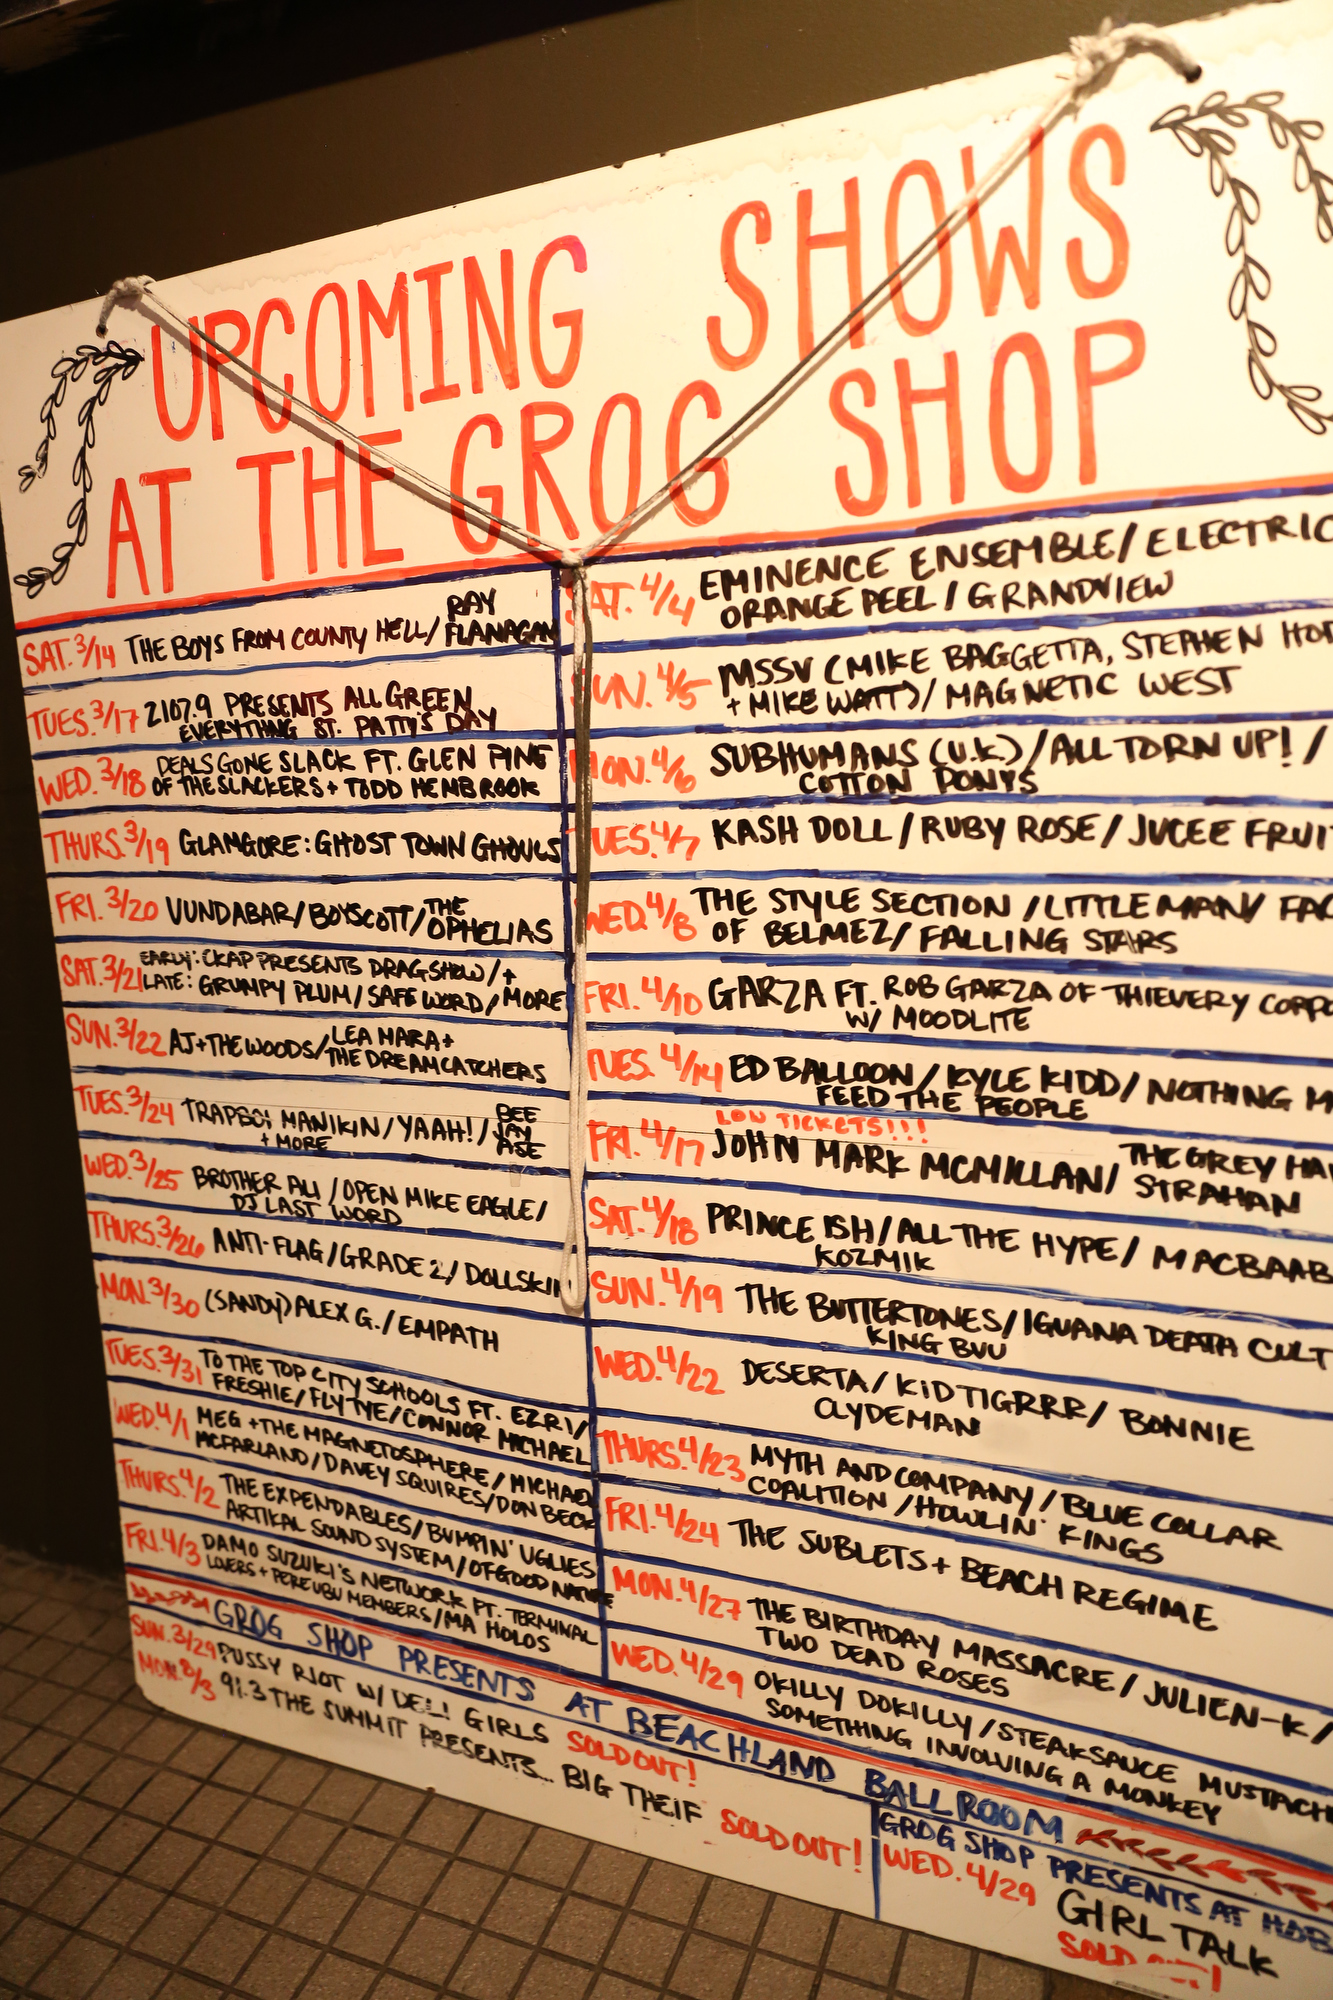 UPCOMING SHOWS
AT THE GROG SHOP
SAT. 3/14 THE BOYS FROM COUNTY HELL/ RAY
FLANAGAN
TUES. 3/17 2107.9 PRESENTS ALL GREEN
EVERYTHING ST. PATTY'S DAY
WED. 3/18 DEALS GONE SLACK FT. GLEN PINE
OF THE SLACKERS + TODD HEMBROOK
THURS. 3/19 GLAMGORE: GHOST TOWN GHOULS
FRI. 3/20 VUNDABAR/BOYSCOTT/THE
OPHELIAS
SAT. 3/21 EARLY: CKAP PRESENTS DRAG SHOW/+
LATE: GRUMPY PLUM/SAFE WORD/MORE
SUN. 3/22 AJ+THE WOODS/LEA MARA+
THE DREAMCATCHERS
TUES. 3/24 TRAPBOI MANIKIN/YAAH!/BEE
JAY
ASE
+ MORE
WED. 3/25 BROTHER ALI/OPEN MIKE EAGLE/
DJ LAST WORD
THURS. 3/26 ANTI-FLAG/GRADE 2/DOLLSKIN
MON. 3/30 (SANDY) ALEX G./EMPATH
TUES. 3/31 TO THE TOP CITY SCHOOLS FT. EZRI/
FRESHIE/FLY TYE/CONNOR MICHAEL
WED. 4/1 MEG +THE MAGNETOSPHERE/MICHAEL
MCFARLAND/DAVEY SQUIRES/DON BECK
THURS. 4/2 THE EXPENDABLES/BUMPIN' UGLIES
ARTIKAL SOUND SYSTEM/OF GOOD NATURE
FRI. 4/3 DAMO SUZUKI'S NETWORK FT. TERMINAL
LOVERS + PERE UBU MEMBERS/MA HOLOS
SAT. 4/4 EMINENCE ENSEMBLE/ELECTRIC
ORANGE PEEL/GRANDVIEW
SUN. 4/5 MSSV (MIKE BAGGETTA, STEPHEN HO
+ MIKE WATT)/MAGNETIC WEST
MON. 4/6 SUBHUMANS (U.K.)/ALL TORN UP!/
COTTON PONYS
TUES. 4/7 KASH DOLL/RUBY ROSE/JUCEE FRUI
WED. 4/8 THE STYLE SECTION/LITTLE MAN/FAC
OF BELMEZ/FALLING STARS
FRI. 4/10 GARZA FT. ROB GARZA OF THIEVERY CORPO
W/ MOODLITE
TUES. 4/14 ED BALLOON/KYLE KIDD/NOTHING M
FEED THE PEOPLE
LOW TICKETS!!!
FRI. 4/17 JOHN MARK MCMILLAN/THE GREY HA
STRAHAN
SAT. 4/18 PRINCE ISH/ALL THE HYPE/MACBAAB
KOZMIK
SUN. 4/19 THE BUTTERTONES/IGUANA DEATH CULT
KING BUU
WED. 4/22 DESERTA/KID TIGRRR/BONNIE
CLYDEMAN
THURS. 4/23 MYTH AND COMPANY/BLUE COLLAR
COALITION/HOWLIN' KINGS
FRI. 4/24 THE SUBLETS + BEACH REGIME
MON. 4/27 THE BIRTHDAY MASSACRE/JULIEN-K/
TWO DEAD ROSES
WED. 4/29 OKILLY DOKILLY/STEAKSAUCE MUSTACH
SOMETHING INVOLVING A MONKEY
GROG SHOP PRESENTS AT BEACHLAND BALLROOM
SUN. 3/29 PUSSY RIOT W/ DEL! GIRLS SOLD OUT!
91.3 THE SUMMIT PRESENTS... BIG THEIF SOLD OUT!
GROG SHOP PRESENTS AT HOB
WED. 4/29 GIRL TALK
SOLD OUT!